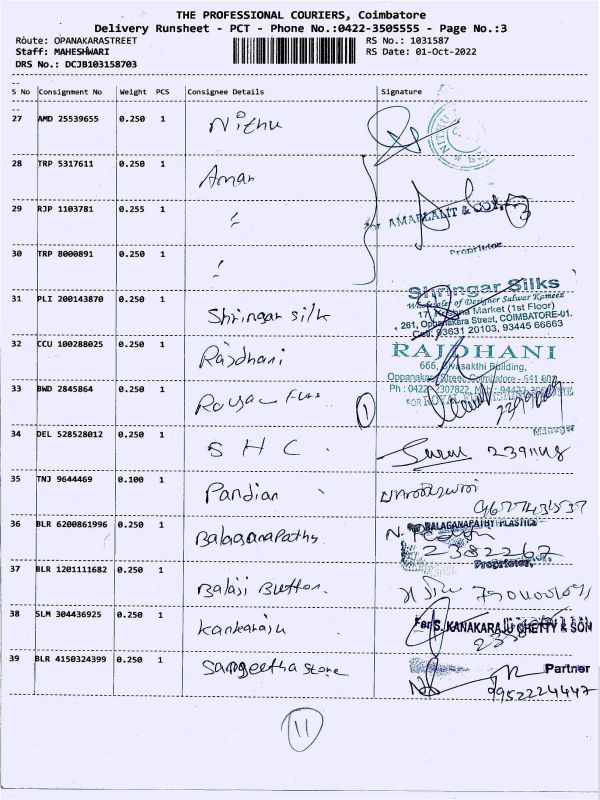 THE PROFESSIONAL COURIERS, Coimbatore
Delivery Runsheet - PCT - Phone No.:0422-3505555 - Page No.:3
Route: OPANAKARASTREET
RS No.: 1031587
Staff: MAHESHWARI
RS Date: 01-Oct-2022
DRS No.: DCJB103158703
S No Consignment No Weight PCS Consignee Details Signature
27 AMD 25539655 0.250 1 Nithu
28 TRP 5317611 0.250 1 Aman
29 RJP 1103781 0.255 1 "
AMARLAMT &
30 TRP 8000891 0.250 1 "
Proprietor
Shringar Silks
Wholesaler of Designer Salwar Kameez
31 PLI 200143870 0.250 1 Shringar silk
17, Krishna Market (1st Floor)
261, Oppanakara Street, COIMBATORE-01.
Cell: 93631 20103, 93445 66663
32 CCU 100288025 0.250 1 Rajdhani
RAJDHANI
666, Sivasakthi Building,
Oppanakara Street, Coimbatore - 641 001
33 BWD 2845864 0.250 1
1
Manager
34 DEL 528528012 0.250 1 S H C .
35 TNJ 9644469 0.100 1 Pandian
36 BLR 6200861996 0.250 1 Balaganapathy
BALAGANAPATHY PLASTICS
2382267
Proprietor.
37 BLR 1201111682 0.250 1 Balaji Button.
38 SLM 304436925 0.250 1 Kankaraju
For S. KANAKARAJU CHETTY & SON
39 BLR 4150324399 0.250 1 Sangeetha Store
Partner
9952224447
11